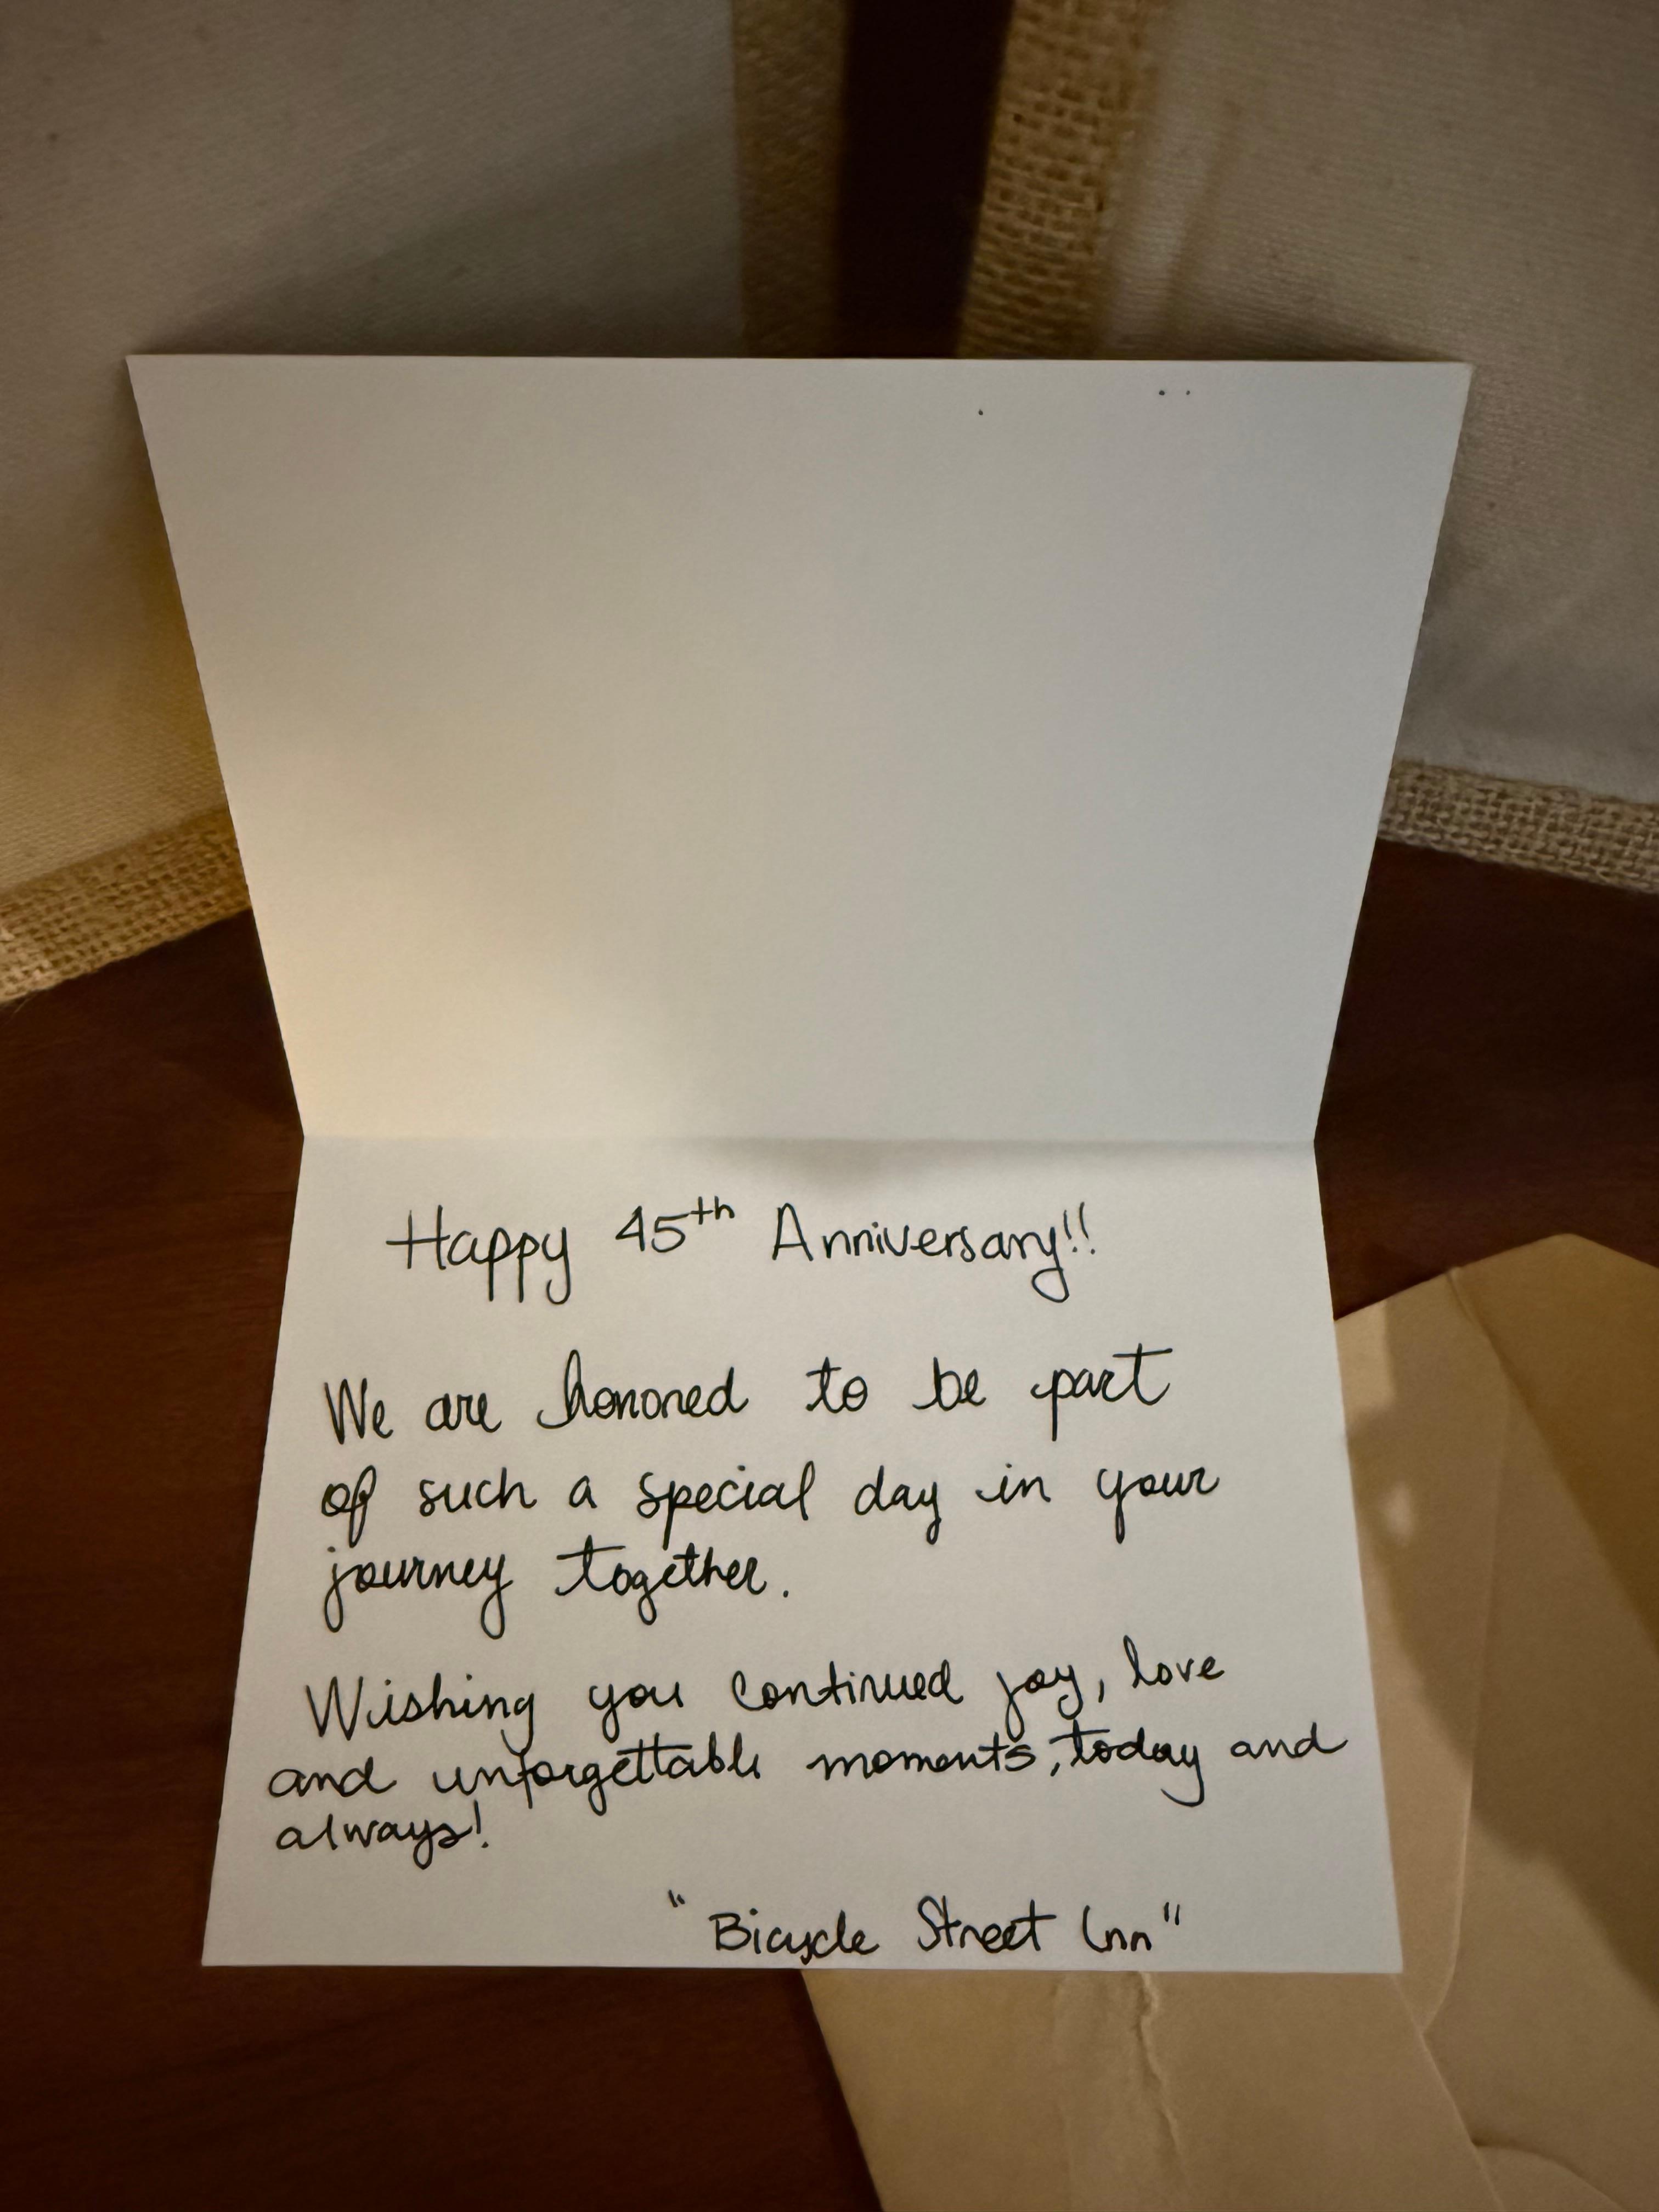 Happy 45th Anniversary!!
We are honored to be part
of such a special day in your
journey together.
Wishing you continued joy, love
and unforgettable moments, today and
always!
"Bicycle Street Inn"